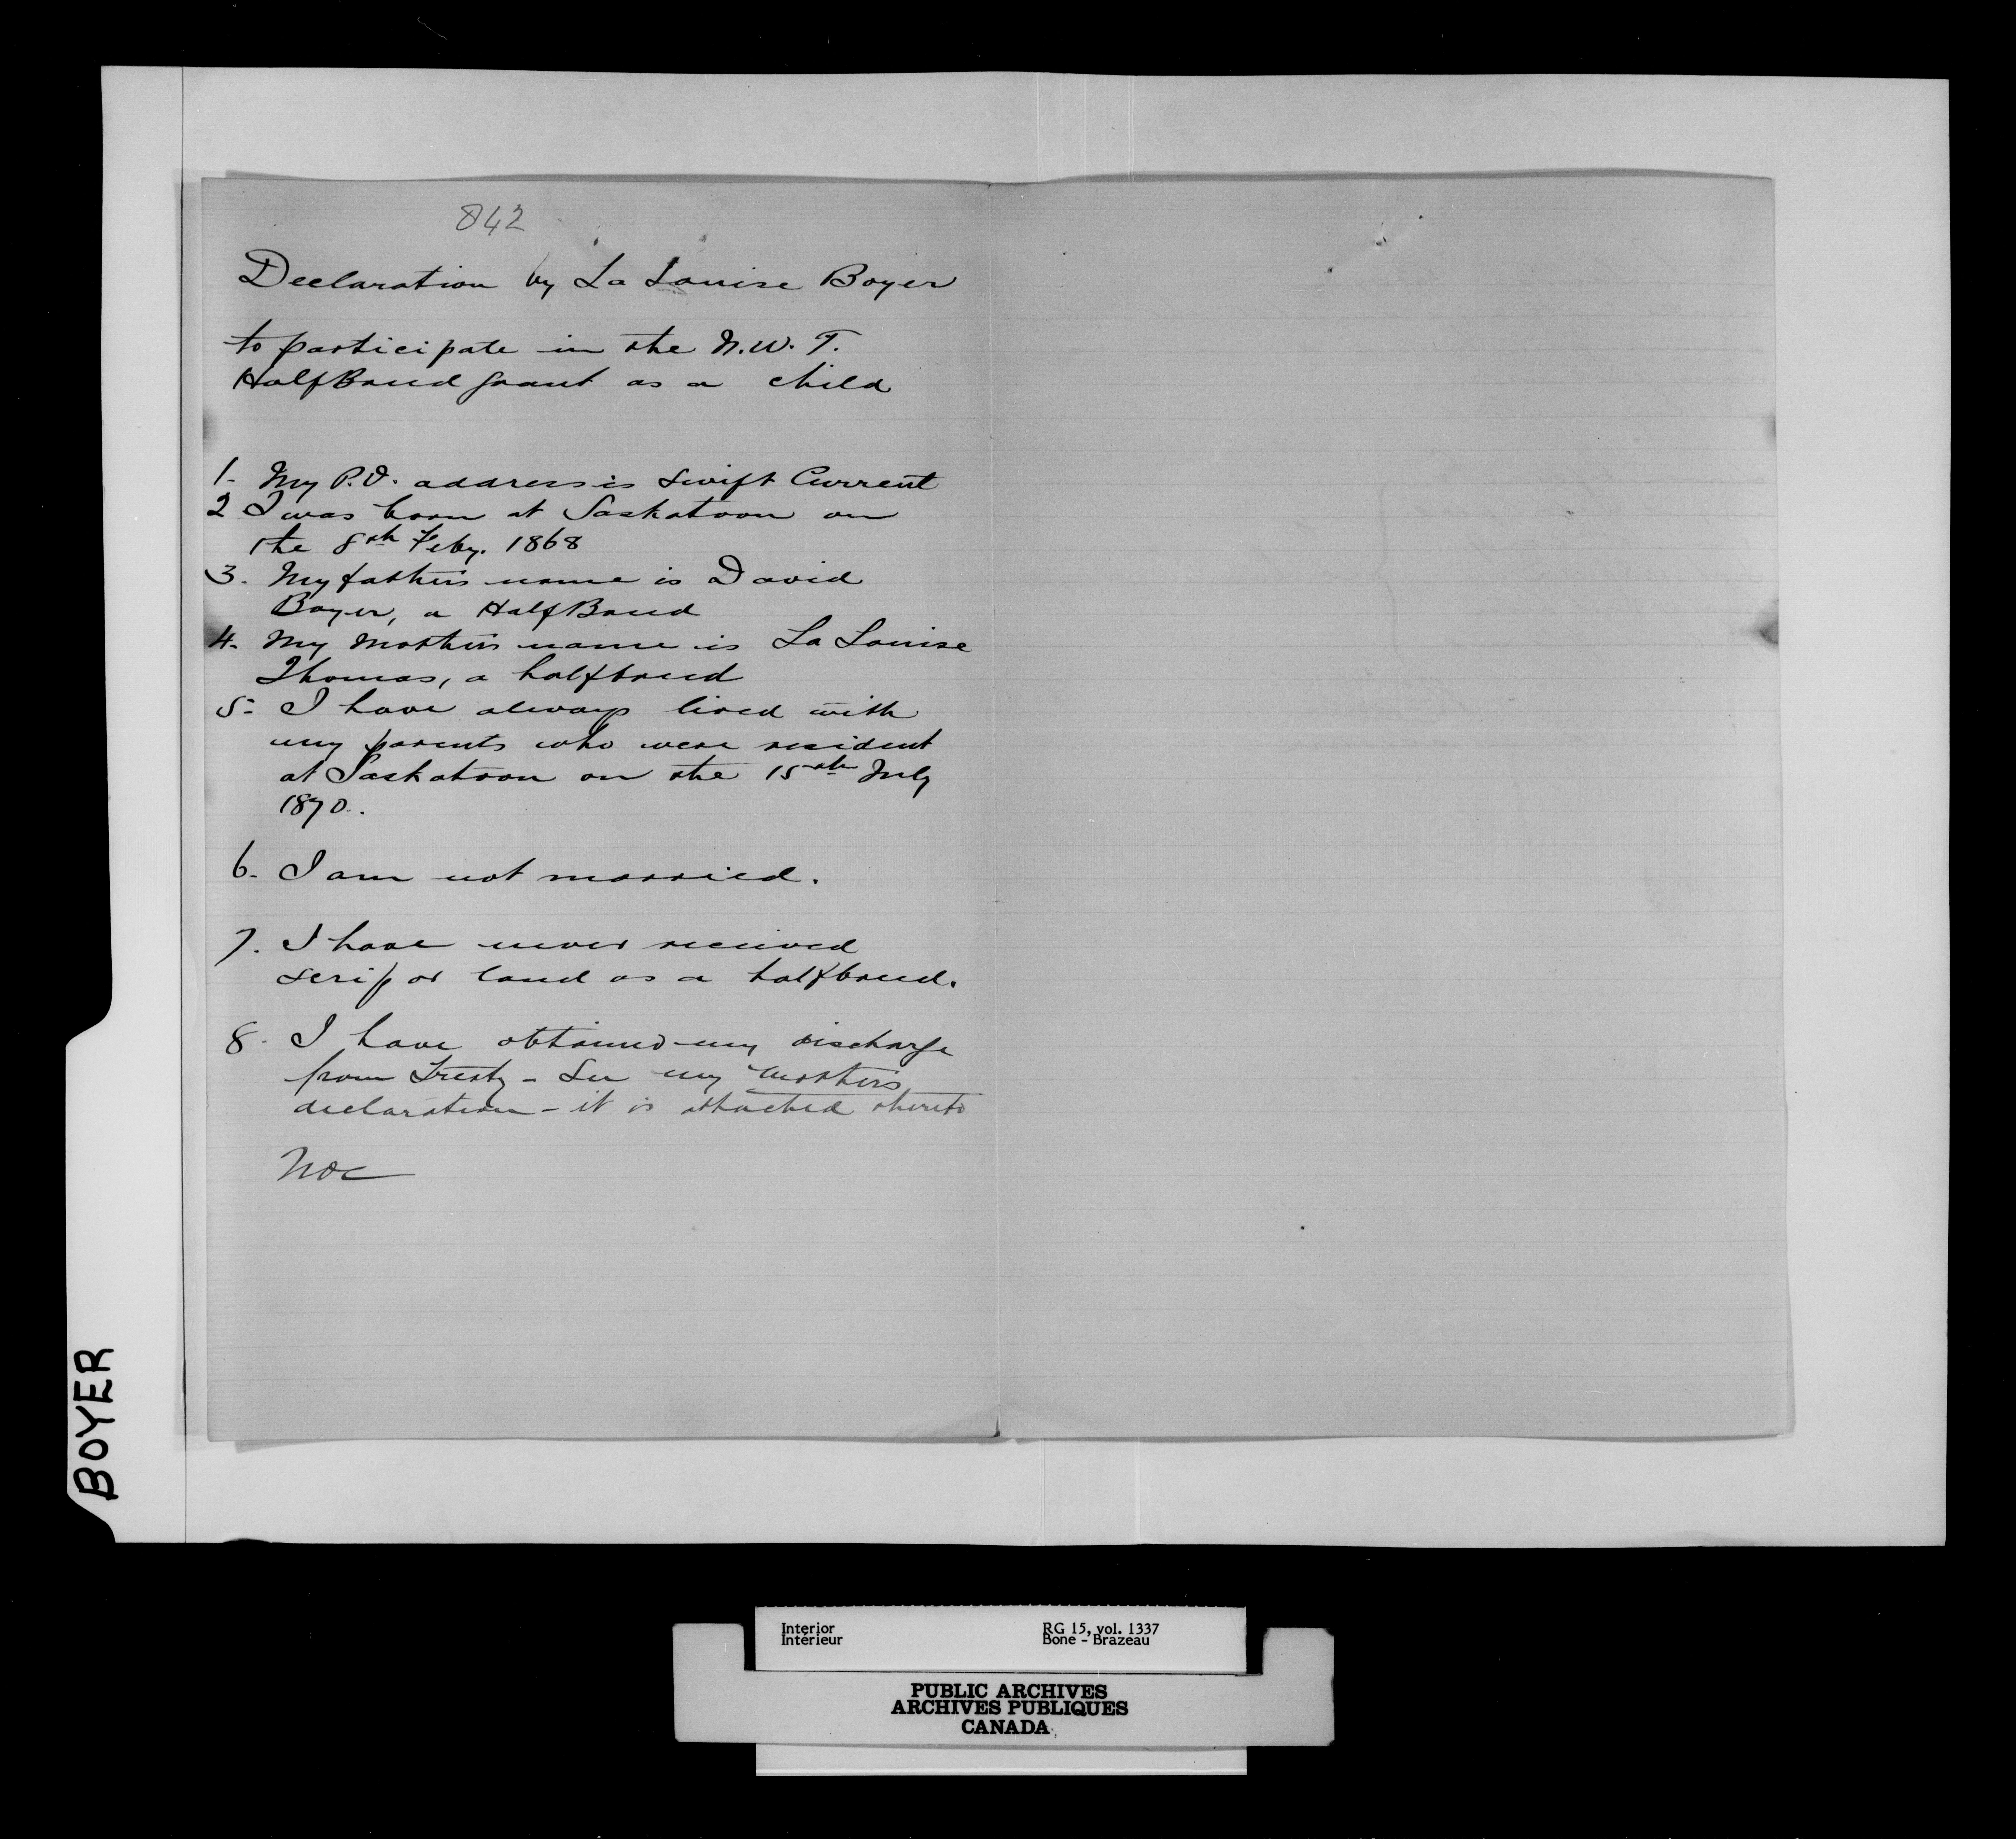 842
Declaration by La Louise Boyer
to participate in the N.W.T.
HalfBreed grant as a child
1- My P.O. address is Swift Current
2 I was born at Saskatoon on
the 8th Feby. 1868
3. My father's name is David
Boyer, a HalfBreed
4. My mother's name is La Louise
Thomas, a halfbreed
5- I have always lived with
my parents who were resident
at Saskatoon on the 15th July
1870.
6- I am not married.
7. I have never received
scrip or land as a halfbreed.
8- I have obtained my discharge
from Treaty - See my mother's
declaration - it is attached thereto
BOYER
Interior
Intérieur
RG 15, vol. 1337
Bone - Brazeau
PUBLIC ARCHIVES
ARCHIVES PUBLIQUES
CANADA